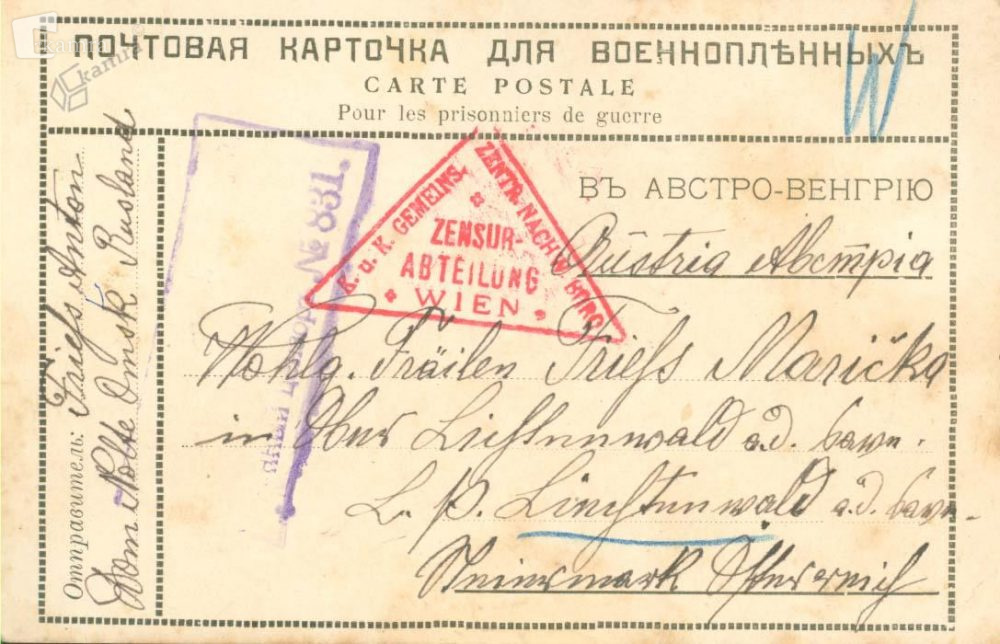 ПОЧТОВАЯ КАРТОЧКА ДЛЯ ВОЕННОПЛѢННЫХЪ
CARTE POSTALE
Pour les prisonniers de guerre
ВЪ АВСТРО-ВЕНГРІЮ
K. u. K. GEMEINS.
ZENTR. NACHW. BÜRO
ZENSUR-
ABTEILUNG
WIEN
№ 831.
Austria Австрія
Wohlg. Fräilen Friess Marička
in Ober Lichtenwald a.d. Sawe.
L. P. Liechtenwald a.d. Sawe.
Steiermark Österreich
Отправитель: Friess Anton
Omsk Rusland
W
kamra
kamra